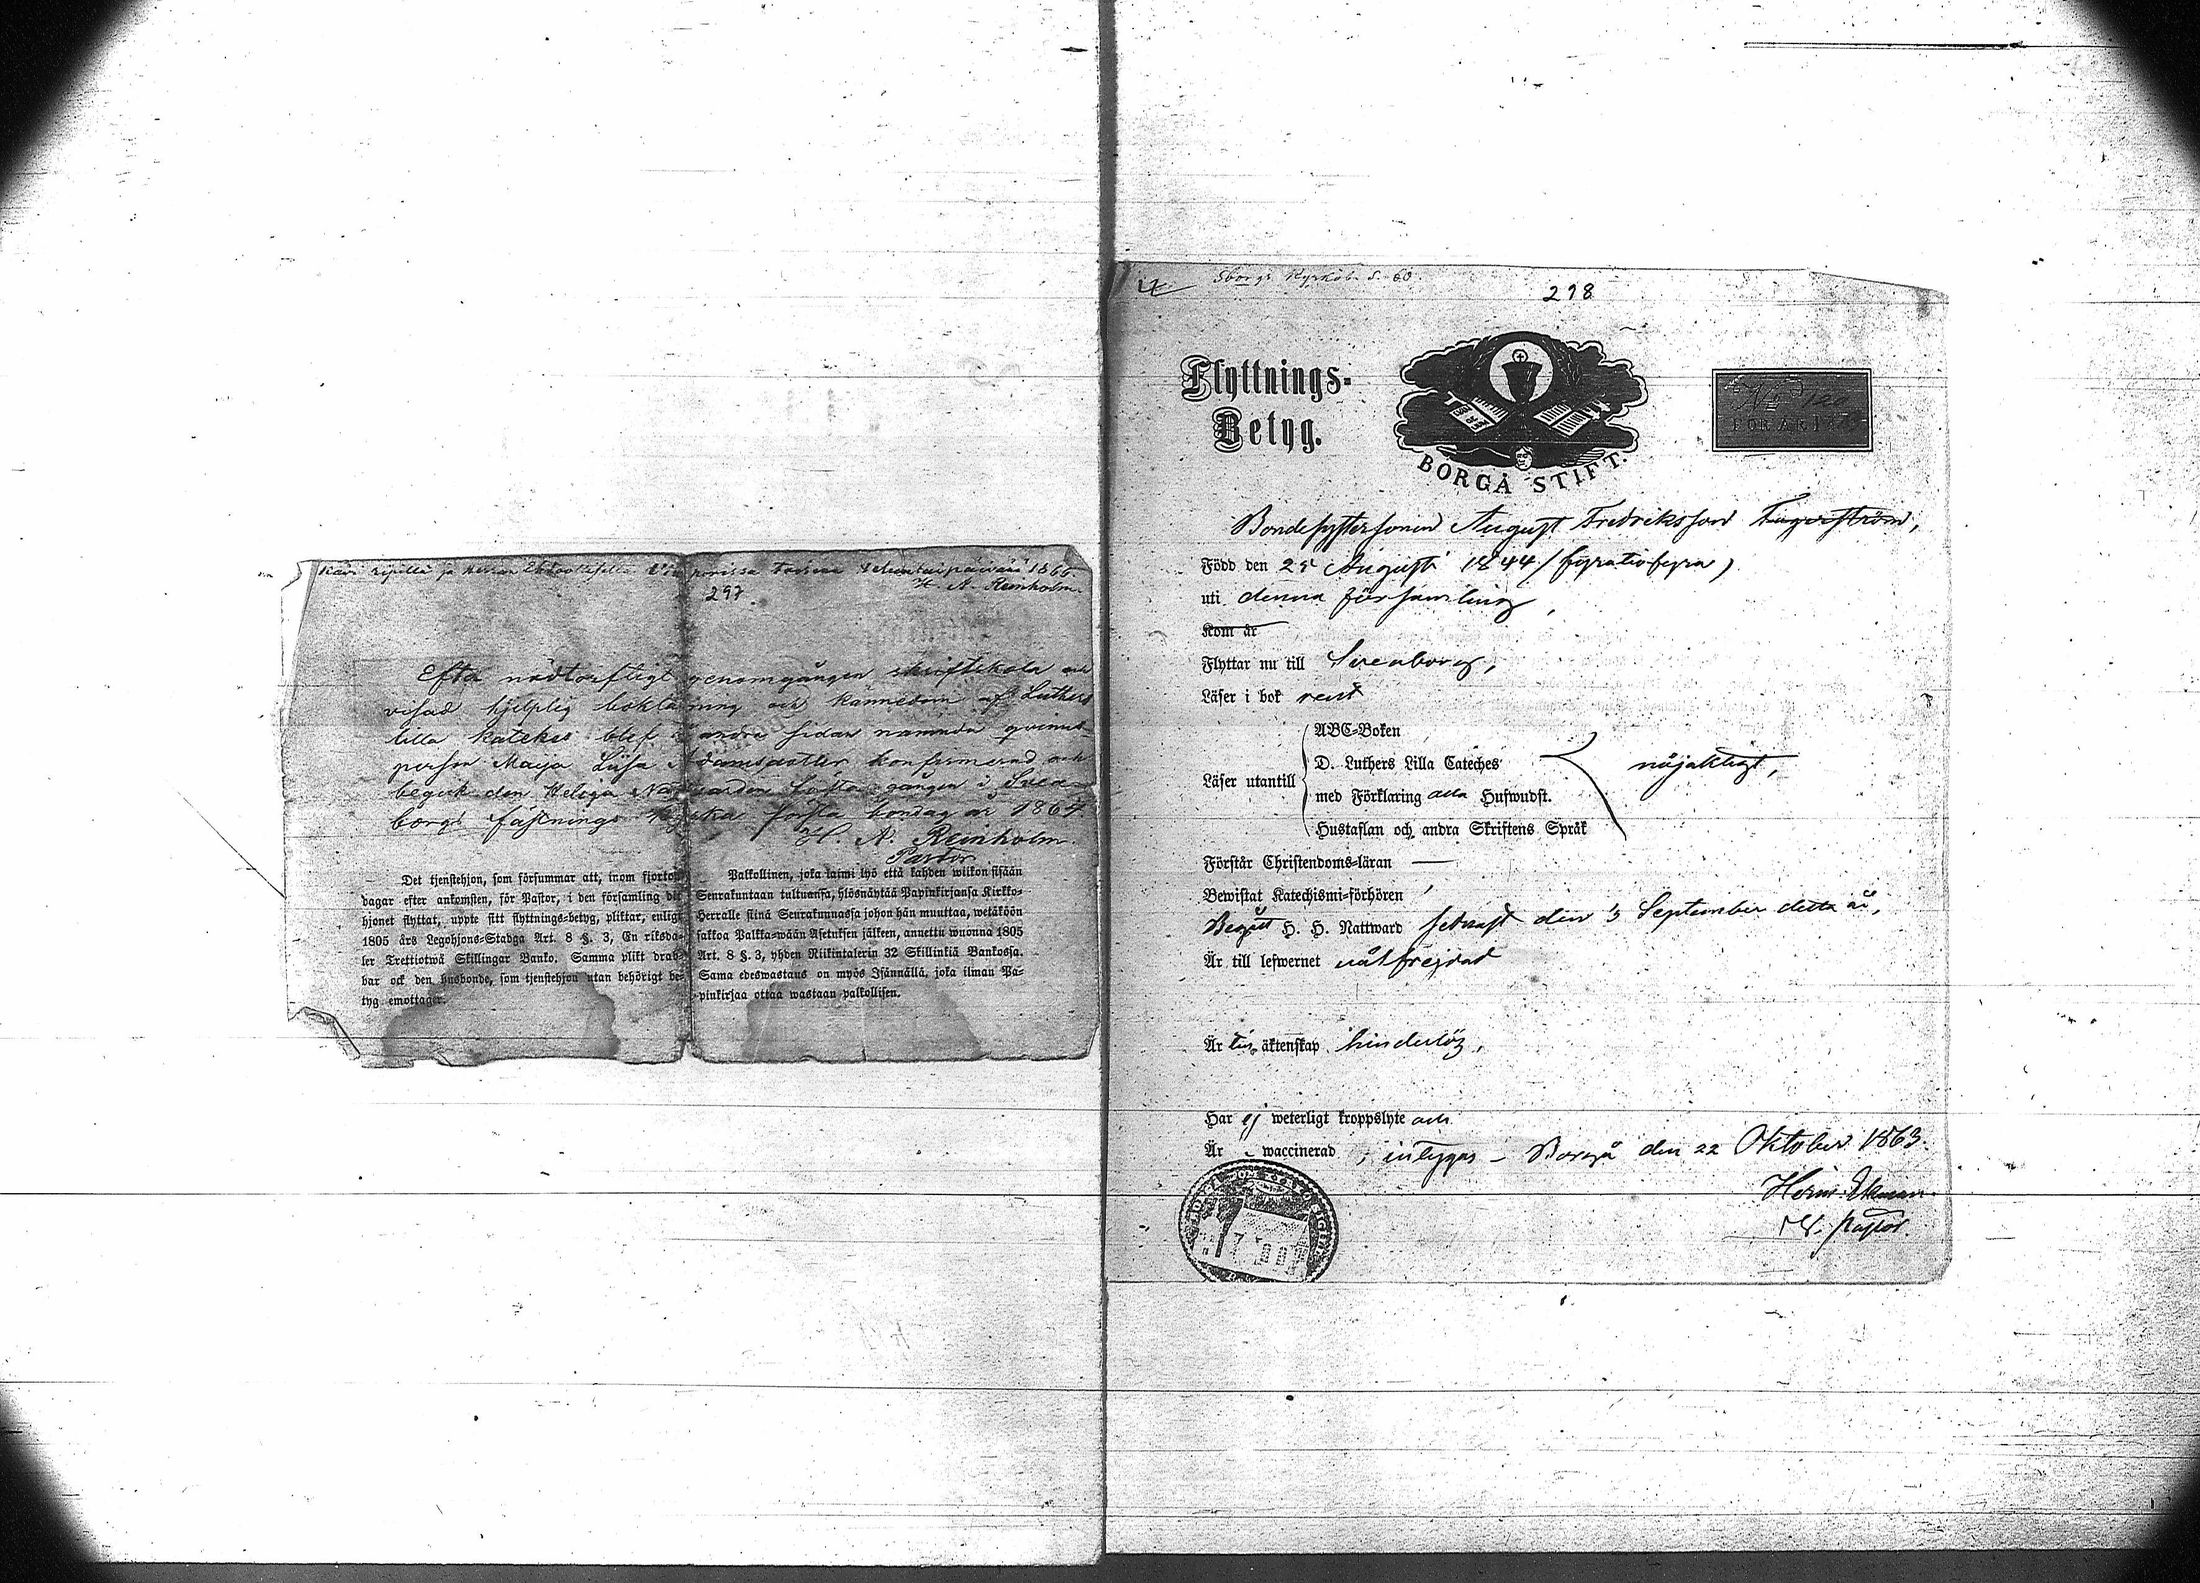 Kävi ripillä ja Herran Ehtoollisella Viaporissa 1866.
H. A. Reinholm.
297
Efter nödtorftligt genomgången skriftskola och
visad hjelplig bokläsning och kännedom af Luthers
lilla katekes blef å andra sidan nämnda qvinns-
person Maja Lisa Adamsdotter konfirmerad och
begick den Heliga Nattvarden första gången i Svea-
borgs fästnings kyrka första böndag år 1864.
H. A. Reinholm.
Pastor
Det tjenstehjon, som försummar att, inom fjorton
dagar efter ankomsten, för Pastor, i den församling dit
hjonet flyttat, uppte sitt flyttnings-betyg, pliktar, enligt
1805 års Legohjons-Stadga Art. 8 §. 3, En riksda-
ler Trettiotwå Skillingar Banko. Samma plikt drab-
bar ock den husbonde, som tjenstehjon utan behörigt be-
tyg emottager.
Palkollinen, joka laimi lyö että kahden wiikon sisään
Seurakuntaan tultuansa, ylösnäytää Papinkirjansa Kirkko-
Herralle siinä Seurakunnassa johon hän muuttaa, wetäköön
sakkoa Palkka-wään Asetuksen jälkeen, annettu wuonna 1805
Art. 8 §. 3, yhden Riikintalerin 32 Skillinkiä Bankossa.
Sama edeswastaus on myös Isännällä, joka ilman Pa-
pinkirjaa ottaa wastaan palkollisen.
Sborgs Kyrkob. S. 60.
298
Flyttnings-
Betyg.
BORGÅ STIFT.
No 120
FÖR ÅR 18
Bondesystersonen August Fredriksson Fagerström,
Född den 25 Augusti 1844 / fyratiofyra)
uti denna församling,
Kom år
Flyttar nu till Sveaborg,
Läser i bok rent
ABC-Boken
D. Luthers Lilla Cateches
Läser utantill
nöjaktigt,
med Förklaring alla Hufwudst.
Hustaflan och andra Skriftens Språk
Förstår Christendoms-läran —
Bewistat Katechismi-förhören
Begått H. H. Nattward sednast den 3 September detta år,
Är till lefwernet wälfrejdad
Är till äktenskap hinderlös,
Har ej weterligt kroppslyte och
Är waccinerad, intygas – Borgå den 22 Oktober 1863.
Herm. Ekman.
Pastor.